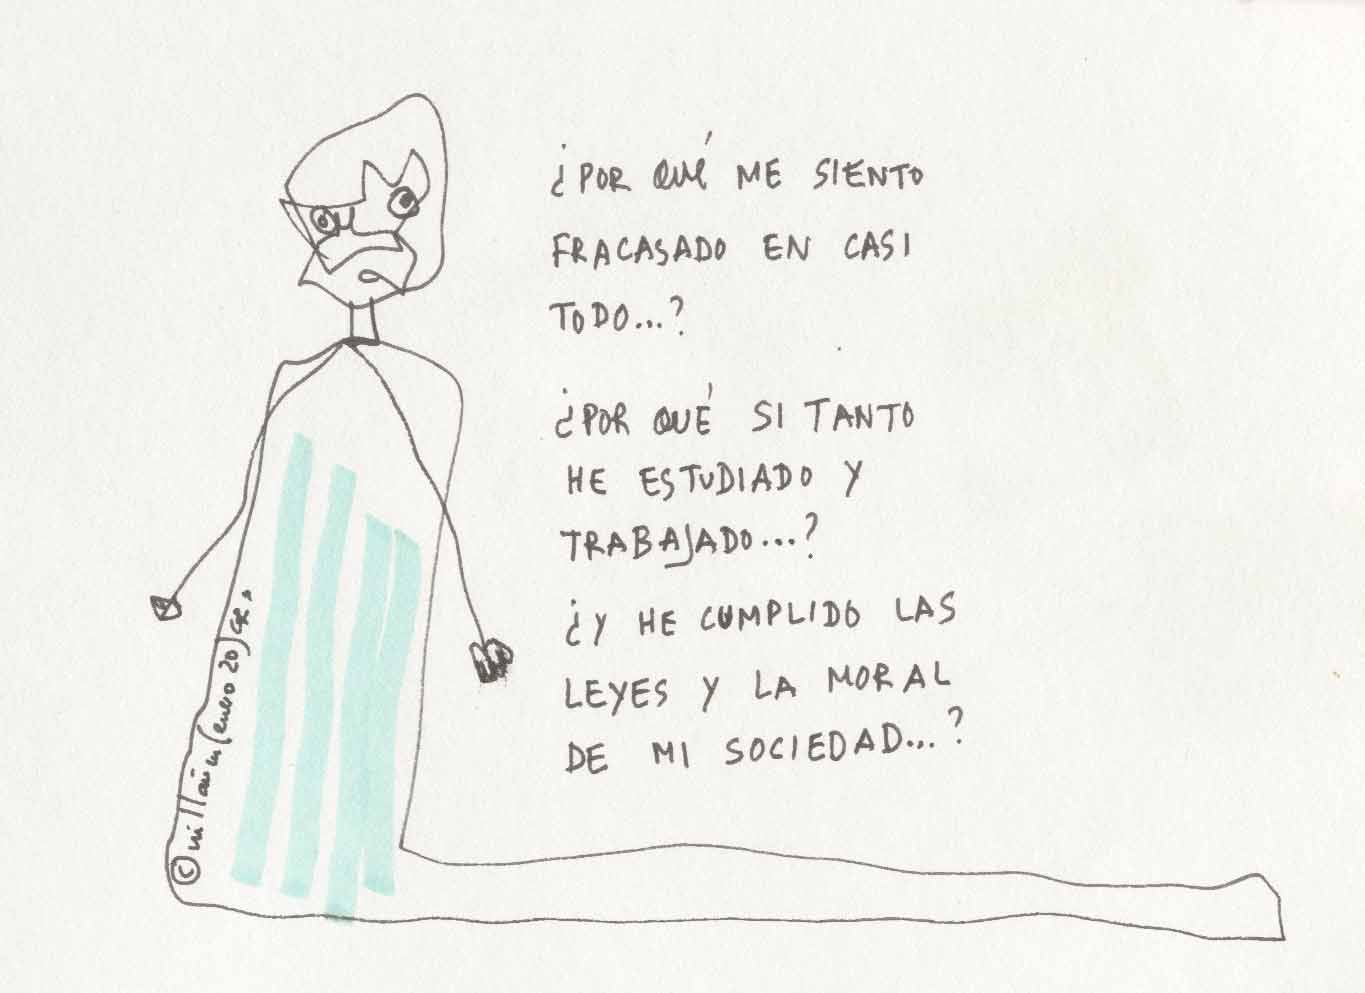 ¿POR QUÉ ME SIENTO
FRACASADO EN CASI
TODO...?
¿POR QUÉ SI TANTO
HE ESTUDIADO Y
TRABAJADO...?
¿Y HE CUMPLIDO LAS
LEYES Y LA MORAL
DE MI SOCIEDAD...?
© millán (enero 20)